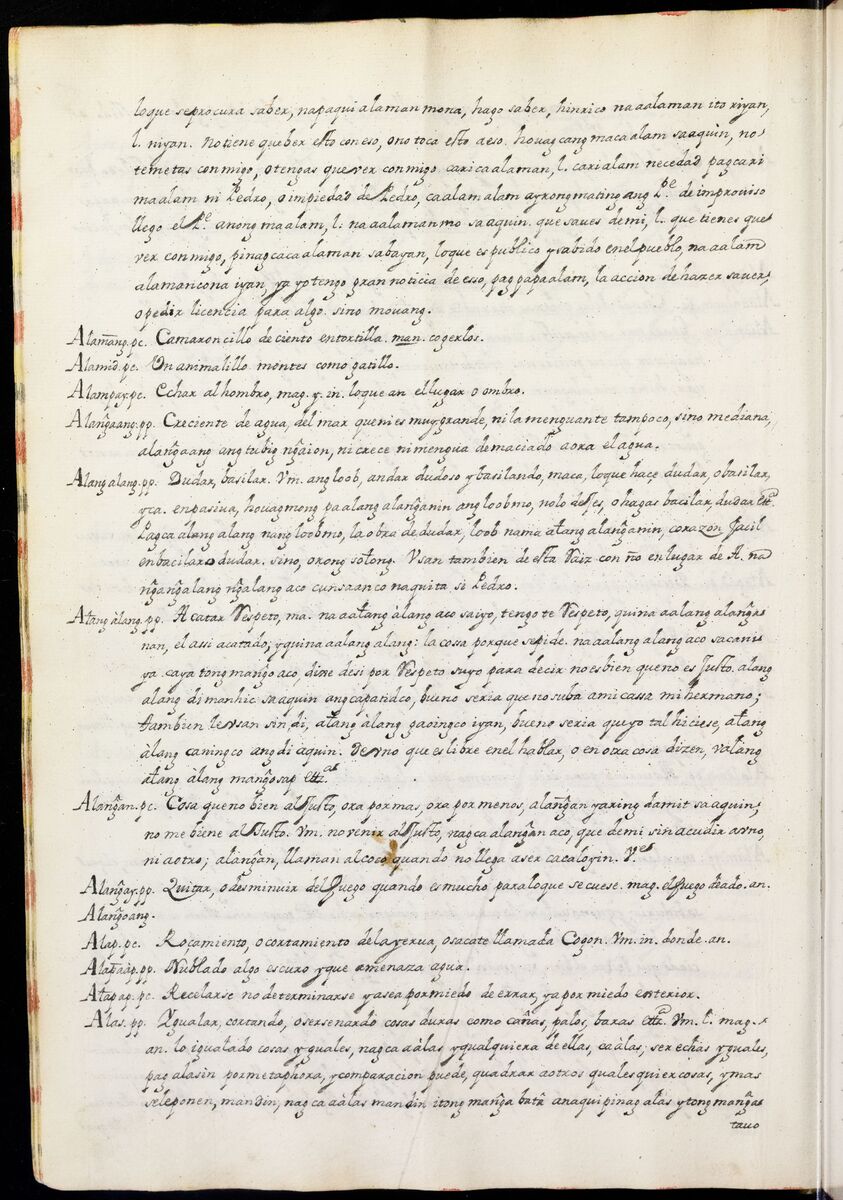 loque seprocura saber, napaqui alaman mona, hago saber, hinrico na aalaman ito riyan,
l. niyan. notiene que ber esto con eso, ono toca esto aeso. houag cang maca alam sa aquin, no
te metas con migo, o tengas que ver con migo. cari ca alaman, l. cari alam necedad pagcari
ma alam ni Pedro, o impiedad de Pedro, ca alam alam ay rong mating ang P.e de improuiso
llego el P.e anong ma alam, l. na aalaman mo sa aquin. que saues de mi, l. que tienes que
ver con migo, pinag caca alaman sa bayan, lo que es publico y sabido en el pueblo, na aalam̃
alamancona iyan, ya yo tengo gran noticia de esso, pag papa alam, la accion de hazer sauer,
o pedir licencia para algo. sino mouang.
Alam̃ang. pc. Camaroncillo de ciento en tortilla. man. cogerlos.
Alamid. pc. Un animalillo montes como gatillo.
Alampay. pc. Echar al hombro, mag. y. in. loque an el lugar o ombro.
Alang̃aang. pp. Creciente de agua, del mar que ni es muy grande, ni la menguante tampoco, sino mediana,
alang̃aang ang tubig ng̃aion, ni crece ni mengua demaciado aora el agua.
Alang alang. pp. Dudar, basilar. Vm. ang loob, andar dudoso y basilando, maca, loque hace dudar, o basilar,
yca. en pasiua, houag mong pa alang alang̃anin ang loob mo, nolo dudes, o hagas bacilar, dudar etc.a
Pagca alang alang nang loob mo, la obra de dudar, loob na ma alang alang̃anin, corazon facil
en bacilar o dudar. sino, orong solong. Vsan tambien de esta Raiz con ño en lugar de A. na
ng̃ang̃alang ng̃alang aco cun sa anco naquita si Pedro.
Alang àlang. pp. Acatar Respeto, ma. na aalang àlang aco saiyo, tengo te Respeto, quina aalang alang̃a
nan, el assi acatado; y quina aalang alang: la cossa porque se pide. na aalang alang aco sa cani
ya caya tong mang̃o aco, dize desi por Respeto suyo para decir no es bien que no es Justo. alang
alang di manhic sa aquin ang capatid co, bueno seria que no suba a mi cassa mi hermano;
tambien le vsan sin di, alang àlang gaoing co iyan, bueno seria que yo tal hiciese, alang
àlang caning co ang di aquin. De vno que es libre en el hablar, o en otra cosa dizen, valang
alang àlang mang̃osap etc.a
Alang̃an. pc. Cosa que no bien al Justo, ora por mas, ora por menos, alang̃an yaring damit sa aquin;
no me biene al Justo. Vm. no venir al Justo, nagca alang̃an aco, que de mi sin acudir a vno,
ni a otro; alang̃an, llaman al coco quando no llega a ser cacaloyin.
Alang̃ay. pp. Quitar, o desminuir del fuego quando es mucho para lo que se cuese. mag. el fuego deado. an.
Alang̃oang.
Alap. pc. Roçamiento, o cortamiento de la yerua, o sacate llamada Cogon. Vm. in. donde. an.
Alapaap. pp. Nublado algo escuro y que amenaza agua.
Alapap. pc. Recelarse no determinarse y a sea por miedo de errar, ya por miedo enterior.
Alas. pp. Ygualar, cortando, o sersenardo cosas duras como cañas, palos, baras etc.a Vm. l. mag.
an. lo igualado cosas yguales, nagca aàlas y qualquiera de ellas, ca àlas; ser echas yguales,
pag alasin por metaphora, y comparacion puede, quadrar a otros quales quier cosas, y mas
se le ponen, mandin, nag ca aàlas mandin itong mang̃a batà anaqui pinag alas ytong mang̃a
tauo